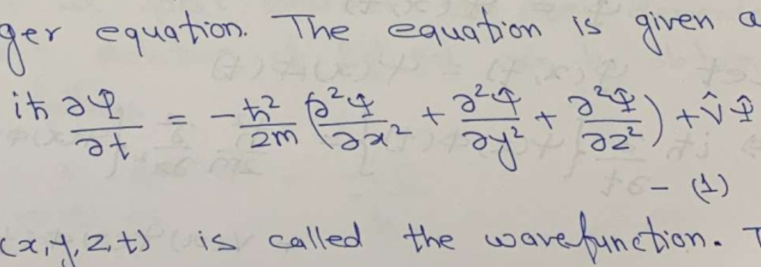 ger equation. The equation is given a
iħ ∂Ψ/∂t = -ħ²/2m (∂²Ψ/∂x² + ∂²Ψ/∂y² + ∂²Ψ/∂z²) + V̂Ψ
- (1)
(x,y,z,t) is called the wavefunction. T